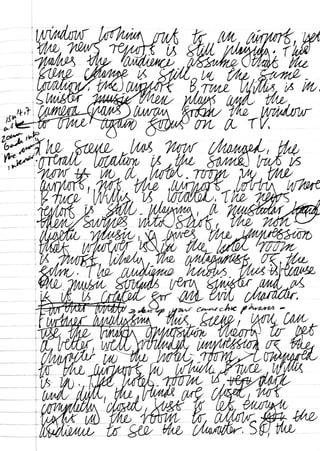 window looking out to an airport, yet
the news report is still playing. This
makes the audience assume that the
scene change is still in the same
location. the airport Bruce Willis is in.
Sinister music then plays and the
camera pans away from the window
to one again focus on a TV.
isn't it
a
zoom
back into
the
interior?
The scene has now changed, the
overall location is the same but is
now in a hotel room in the
airport, not the airport lobby where
Bruce Willis is located. The news
report is still playing, a
then swings into shot, the non
diagetic music gives the impression
that whoever is in the hotel room
is most likely the antagonist of the
film. The audience knows this because
the music sounds very sinister and as
is it is created for an evil character.
Further
Further analysing this scene, you can
use the binary opposition theory to get
a better, well rounded impression of the
character in the hotel room. Compared
to the airport in which Bruce Willis
is in. The hotel room is very dark
and dull, the blinds are closed, not
completly closed, just to let enough
light in the room to allow the
audience to see the character. So, the